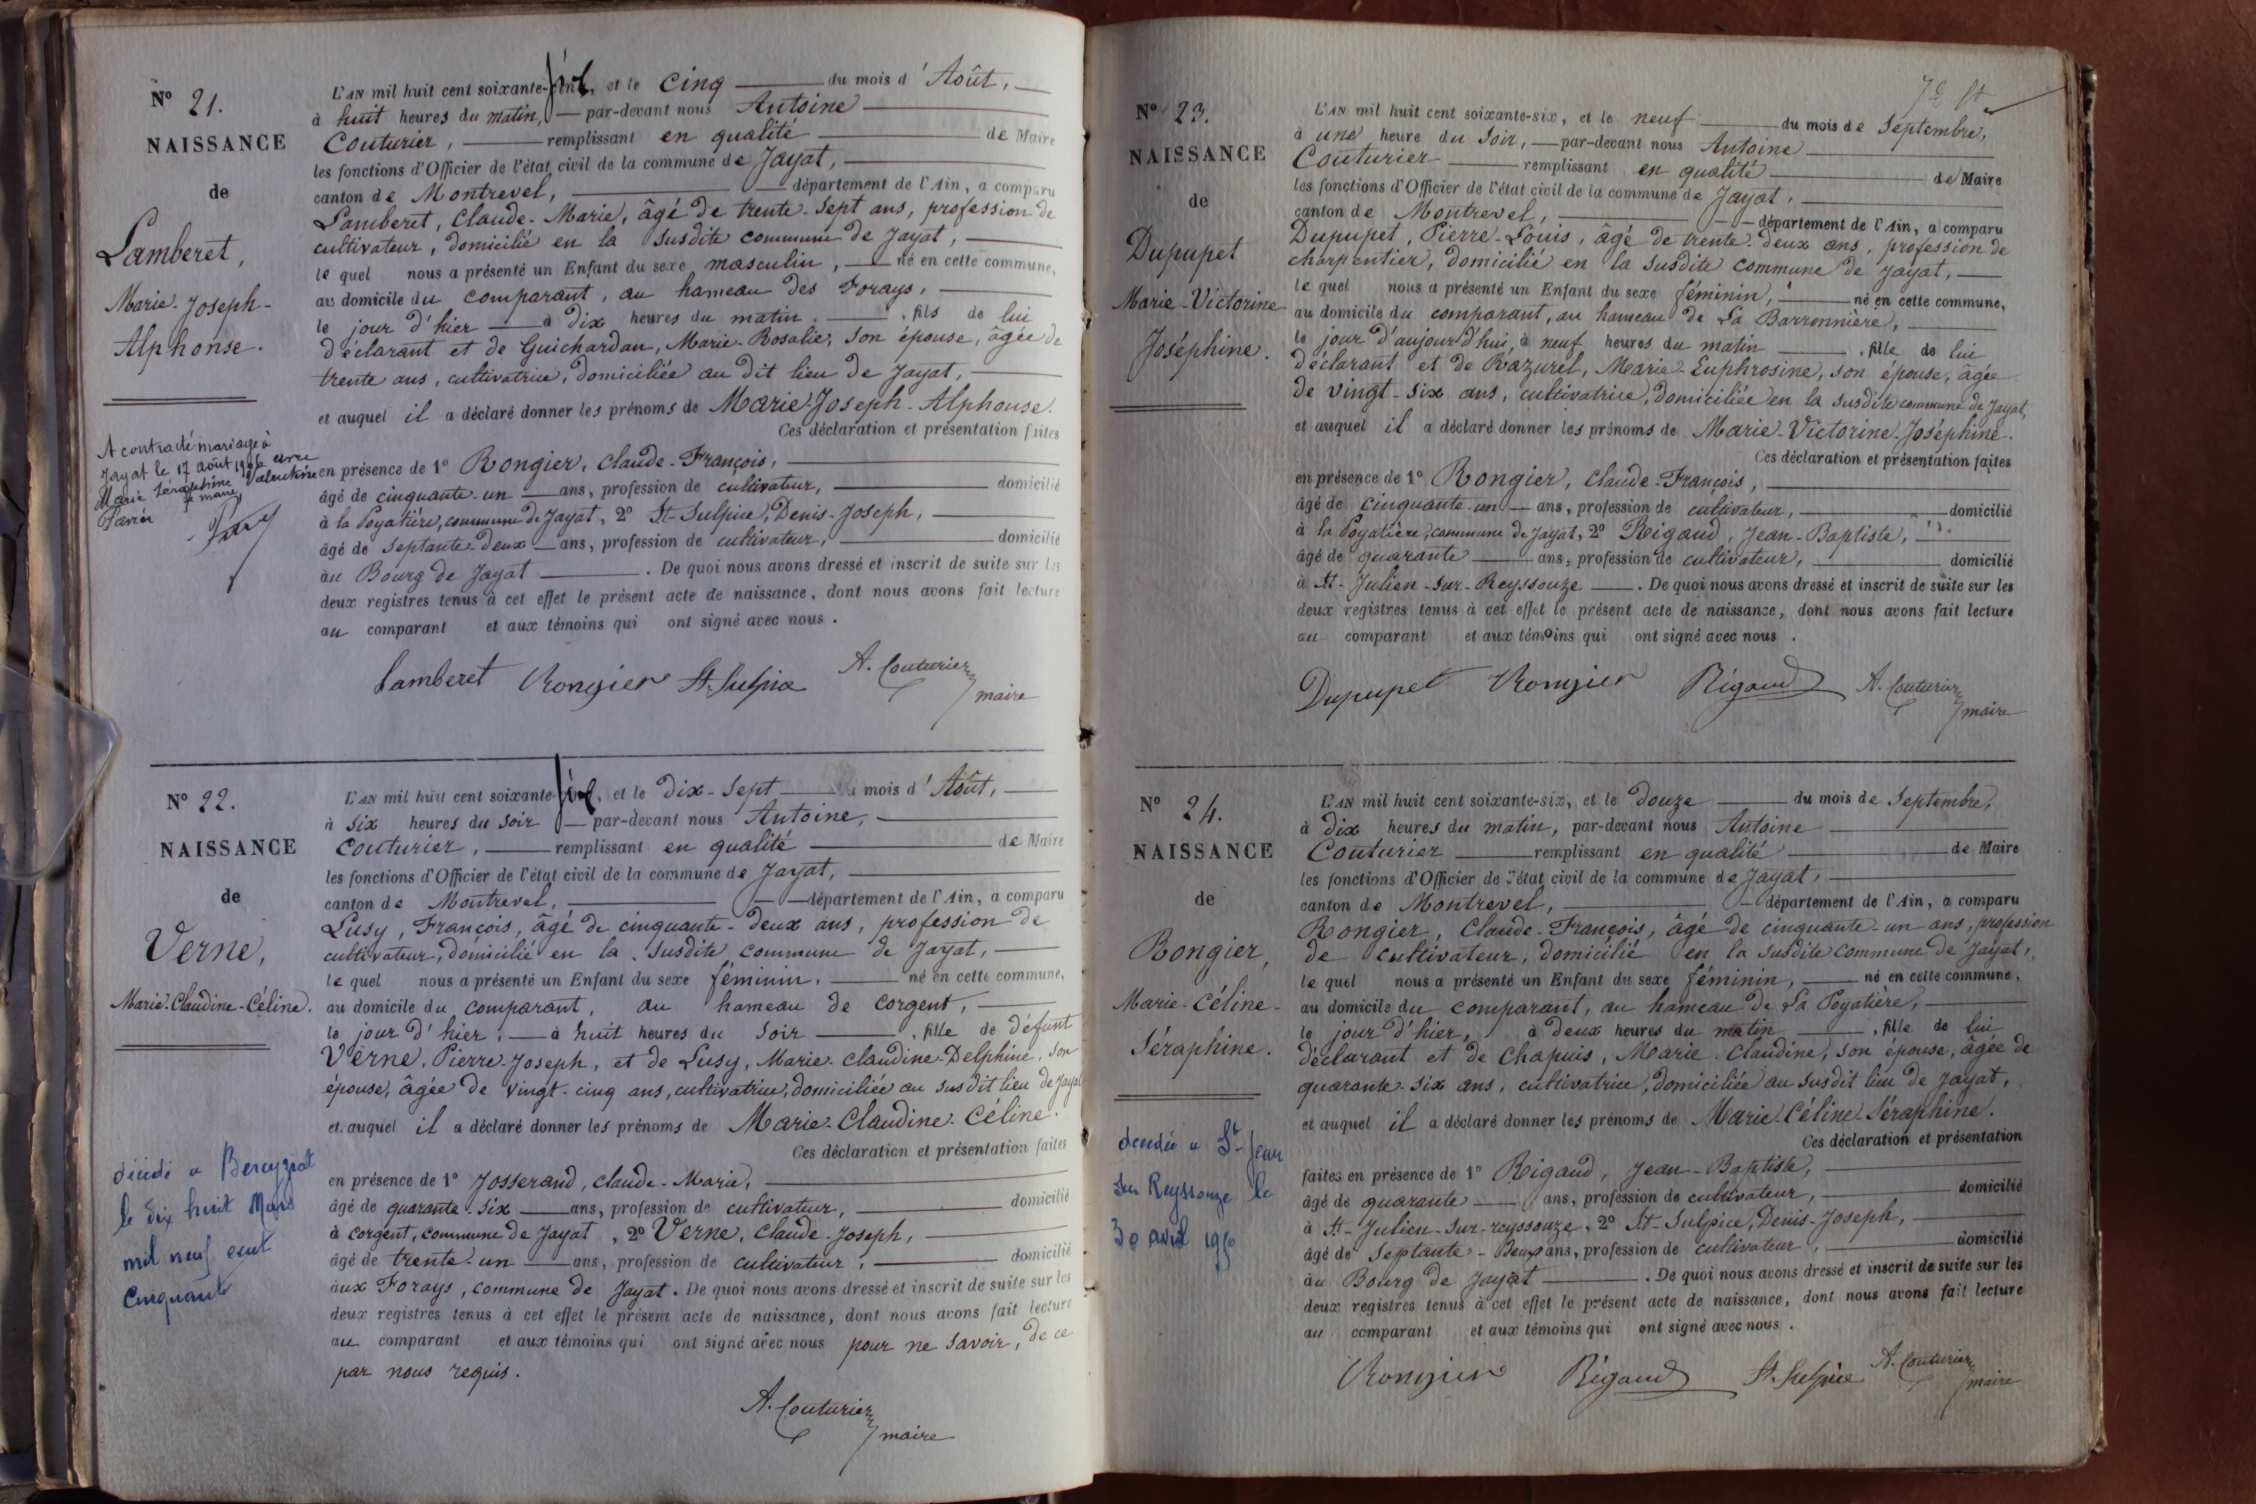 N° 21.
NAISSANCE
de
Lamberet,
Marie-Joseph-
Alphonse.
A contracté mariage à
Jayat le 17 août 1906 avec
Marie Séraphine Valentine
le maire
L'AN mil huit cent soixante-six, et le cinq du mois d'Août,
à huit heures du matin, par-devant nous Antoine
Couturier, remplissant en qualité de Maire
les fonctions d'Officier de l'état civil de la commune de Jayat,
canton de Montrevel, département de l'Ain, a comparu
Lamberet, Claude-Marie, âgé de trente-sept ans, profession de
cultivateur, domicilié en la susdite commune de Jayat,
le quel nous a présenté un Enfant du sexe masculin, né en cette commune,
au domicile du comparant, au hameau des Forays,
le jour d'hier à dix heures du matin, fils de lui
déclarant et de Guichardan, Marie-Rosalie, son épouse, âgée de
trente ans, cultivatrice, domiciliée au dit lieu de Jayat,
et auquel il a déclaré donner les prénoms de Marie-Joseph-Alphonse.
Ces déclaration et présentation faites
en présence de 1° Rongier, Claude-François,
âgé de cinquante-un ans, profession de cultivateur, domicilié
à la Poyatière, commune de Jayat, 2° St-Sulpice, Denis-Joseph,
âgé de septante-deux ans, profession de cultivateur, domicilié
au Bourg de Jayat. De quoi nous avons dressé et inscrit de suite sur les
deux registres tenus à cet effet le présent acte de naissance, dont nous avons fait lecture
au comparant et aux témoins qui ont signé avec nous.
Lamberet Rongier St-Sulpice A. Couturier
maire
N° 22.
NAISSANCE
de
Verne,
Marie-Claudine-Céline.
décédé à Bereyziat
le dix huit Mars
mil neuf cent
cinquante
L'AN mil huit cent soixante-six, et le dix-sept du mois d'Août,
à six heures du soir par-devant nous Antoine,
Couturier, remplissant en qualité de Maire
les fonctions d'Officier de l'état civil de la commune de Jayat,
canton de Montrevel, département de l'Ain, a comparu
Lusy, François, âgé de cinquante-deux ans, profession de
cultivateur, domicilié en la susdite commune de Jayat,
le quel nous a présenté un Enfant du sexe féminin, né en cette commune,
au domicile du comparant, au hameau de Corgent,
le jour d'hier, à huit heures du soir, fille de défunt
Verne, Pierre-Joseph, et de Lusy, Marie-Claudine-Delphine, son
épouse, âgée de vingt-cinq ans, cultivatrice, domiciliée au susdit lieu de Jayat
et auquel il a déclaré donner les prénoms de Marie-Claudine-Céline.
Ces déclaration et présentation faites
en présence de 1° Josserand, Claude-Marie,
âgé de quarante-six ans, profession de cultivateur, domicilié
à Corgent, commune de Jayat, 2° Verne, Claude-Joseph,
âgé de trente-un ans, profession de cultivateur, domicilié
aux Forays, commune de Jayat. De quoi nous avons dressé et inscrit de suite sur les
deux registres tenus à cet effet le présent acte de naissance, dont nous avons fait lecture
au comparant et aux témoins qui ont signé avec nous pour ne savoir, de ce
par nous requis.
A. Couturier
maire
N° 23.
NAISSANCE
de
Dupupet
Marie-Victorine
Joséphine.
L'AN mil huit cent soixante-six, et le neuf du mois de Septembre,
à une heure du soir, par-devant nous Antoine
Couturier remplissant en qualité de Maire
les fonctions d'Officier de l'état civil de la commune de Jayat,
canton de Montrevel, département de l'Ain, a comparu
Dupupet, Pierre-Louis, âgé de trente-deux ans, profession de
charpentier, domicilié en la susdite commune de Jayat,
le quel nous a présenté un Enfant du sexe féminin, né en cette commune,
au domicile du comparant, au hameau de La Barronnière,
le jour d'aujourd'hui, à neuf heures du matin, fille de lui
déclarant et de Razurel, Marie-Euphrosine, son épouse, âgée
de vingt-six ans, cultivatrice, domiciliée en la susdite commune de Jayat,
et auquel il a déclaré donner les prénoms de Marie-Victorine-Joséphine.
Ces déclaration et présentation faites
en présence de 1° Rongier, Claude-François,
âgé de cinquante-un ans, profession de cultivateur, domicilié
à la Poyatière, commune de Jayat, 2° Rigaud, Jean-Baptiste,
âgé de quarante ans, profession de cultivateur, domicilié
à St-Julien-sur-Reyssouze. De quoi nous avons dressé et inscrit de suite sur les
deux registres tenus à cet effet le présent acte de naissance, dont nous avons fait lecture
au comparant et aux témoins qui ont signé avec nous.
Dupupet Rongier Rigaud A. Couturier
maire
N° 24.
NAISSANCE
de
Rongier,
Marie-Céline-
Séraphine.
décédée à St-Jean
sur Reyssouze le
30 avril 1950
L'AN mil huit cent soixante-six, et le douze du mois de Septembre,
à dix heures du matin, par-devant nous Antoine
Couturier remplissant en qualité de Maire
les fonctions d'Officier de l'état civil de la commune de Jayat,
canton de Montrevel, département de l'Ain, a comparu
Rongier, Claude-François, âgé de cinquante-un ans, profession
de cultivateur, domicilié en la susdite commune de Jayat,
le quel nous a présenté un Enfant du sexe féminin, né en cette commune,
au domicile du comparant, au hameau de La Poyatière,
le jour d'hier, à deux heures du matin, fille de lui
déclarant et de Chapuis, Marie-Claudine, son épouse, âgée de
quarante-six ans, cultivatrice, domiciliée au susdit lieu de Jayat,
et auquel il a déclaré donner les prénoms de Marie-Céline-Séraphine.
Ces déclaration et présentation
faites en présence de 1° Rigaud, Jean-Baptiste,
âgé de quarante ans, profession de cultivateur, domicilié
à St-Julien-sur-reyssouze, 2° St-Sulpice, Denis-Joseph,
âgé de Septante-Deux ans, profession de cultivateur, domicilié
au Bourg de Jayat. De quoi nous avons dressé et inscrit de suite sur les
deux registres tenus à cet effet le présent acte de naissance, dont nous avons fait lecture
au comparant et aux témoins qui ont signé avec nous.
Rongier Rigaud St-Sulpice A. Couturier
maire